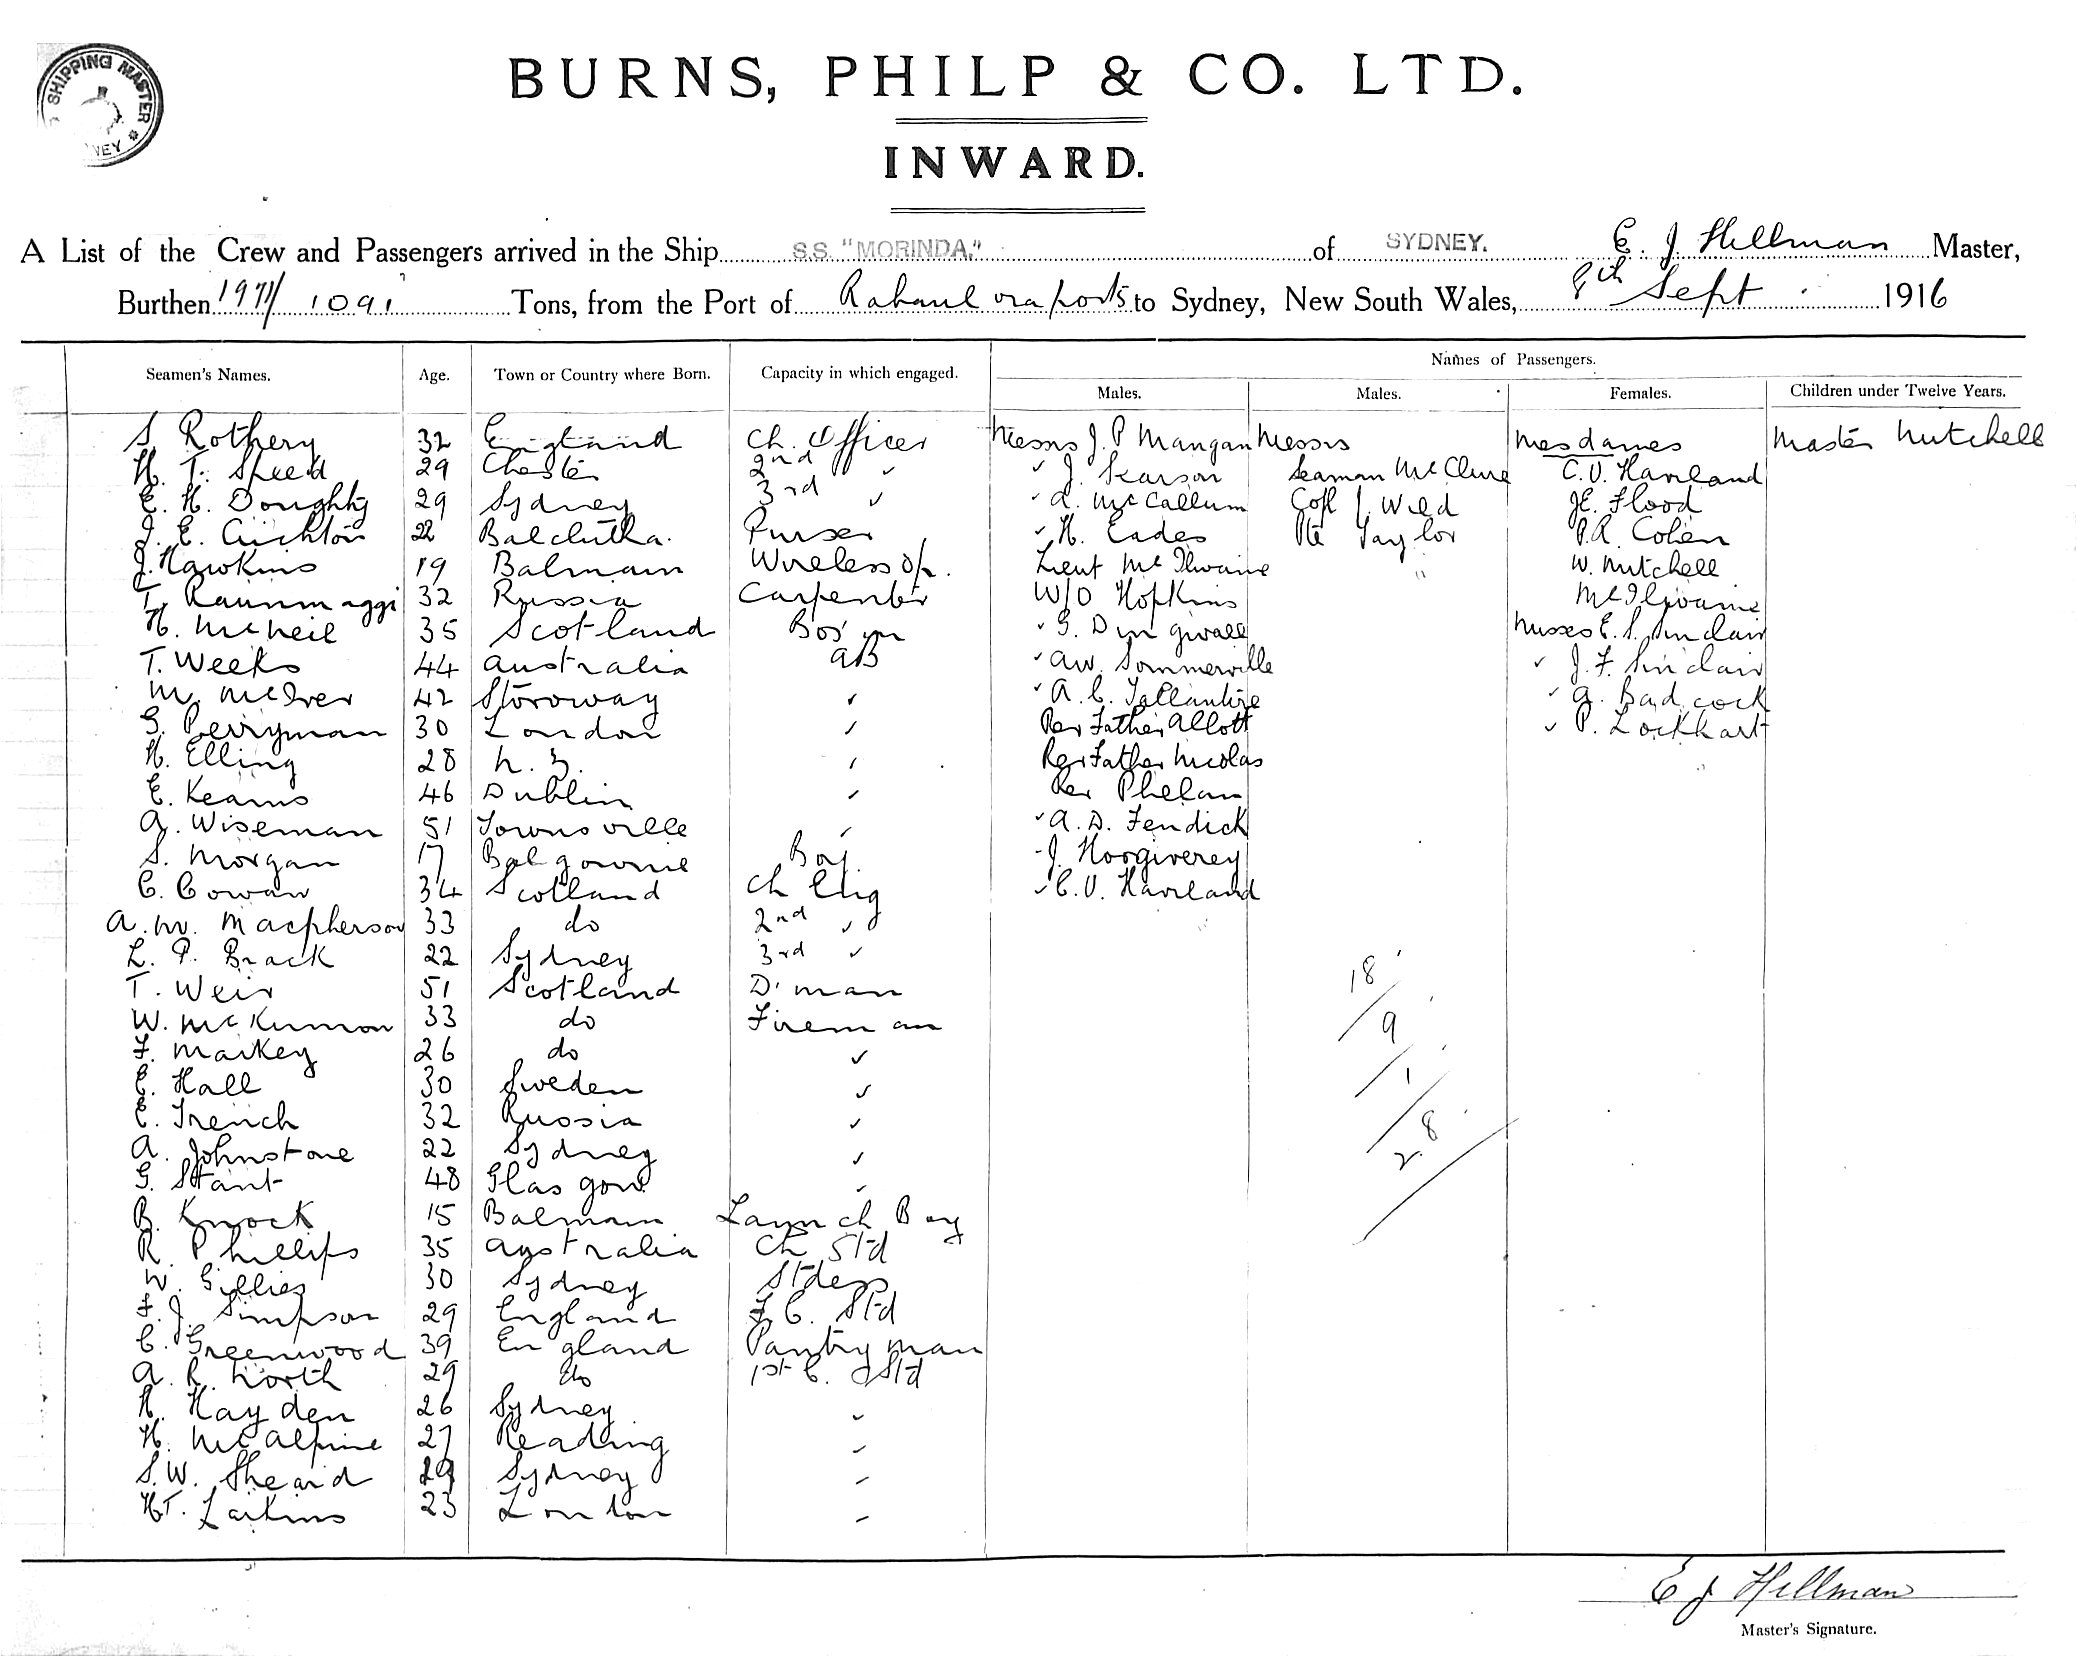 SHIPPING MASTER
BURNS, PHILP & CO. LTD.
INWARD.
A List of the Crew and Passengers arrived in the Ship S.S. "MORINDA," of SYDNEY. E. J. Hillman Master,
Burthen 1971/1091 Tons, from the Port of Rabaul via ports to Sydney, New South Wales, 9th Sept 1916
Names of Passengers.
Seamen's Names. Age. Town or Country where Born. Capacity in which engaged. Males. Males. Females. Children under Twelve Years.
S Rothery 32 England Ch. Officer Messrs J. P Mangan Messrs Mesdames Master Mitchell
H. T. Speed 29 Chester 2nd ✓ ✓ J. Pearson Seaman McClure C.V. Haviland
E. H. Doughty 29 Sydney 3rd ✓ ✓ A. McCallum Cpl J. Wild JE. Flood
J. E. Crichton 22 Balclutha. Purser ✓ H. Eades Pte Taylor P.R. Cohen
J. Hawkins 19 Balmain Wireless Op. Lieut McIlwaine W. Mitchell
T. 32 Russia Carpenter W/O Hopkins McIlwaine
H. McNeil 35 Scotland Bos'un ✓ G. Dingwall Misses E. S. Sinclair
T. Weeks 44 Australia AB ✓ AW. Sommerville ✓ J. F. Sinclair
M. McIver 42 Stornoway ✓ ✓ A. C. Tallantire ✓ A. Badcock
G. Perryman 30 London ✓ Rev Father Allott ✓ P. Lockhart
H. Elling 28 N. Z. ✓ Rev Father Nicolas
E. Kearns 46 Dublin ✓ Rev Phelan
A. Wiseman 51 Townsville ✓ ✓ A. D. Fendick
S. Morgan 17 Balgownie Boy. J.
C. Cowan 34 Scotland Ch Eng ✓ C. V. Haviland
A. M. Macpherson 33 do 2nd ✓
L. P. Brack 22 Sydney 3rd ✓
T. Weir 51 Scotland D'man 18
W. McKinnon 33 do Fireman 9
F. Markey 26 do ✓
E. Hall 30 Sweden ✓ 1
E. Trench 32 Russia ✓
A. Johnstone 22 Sydney ✓ 28
G. Stant 48 Glasgow ✓
B. Knock 15 Balmain Launch Boy
R. Phillips 35 Australia Ch Std
W. Gillies 30 Sydney Stdess
F. J. Simpson 29 England F. C. Std
C. Greenwood 39 England Pantryman
A. R. North 29 do 1st C. Std
H. Hayden 26 Sydney ✓
H. McAlpine 27 Reading ✓
S. W. Sheard 29 Sydney ✓
HT. Larkins 23 London ✓
E J Hillman
Master's Signature.